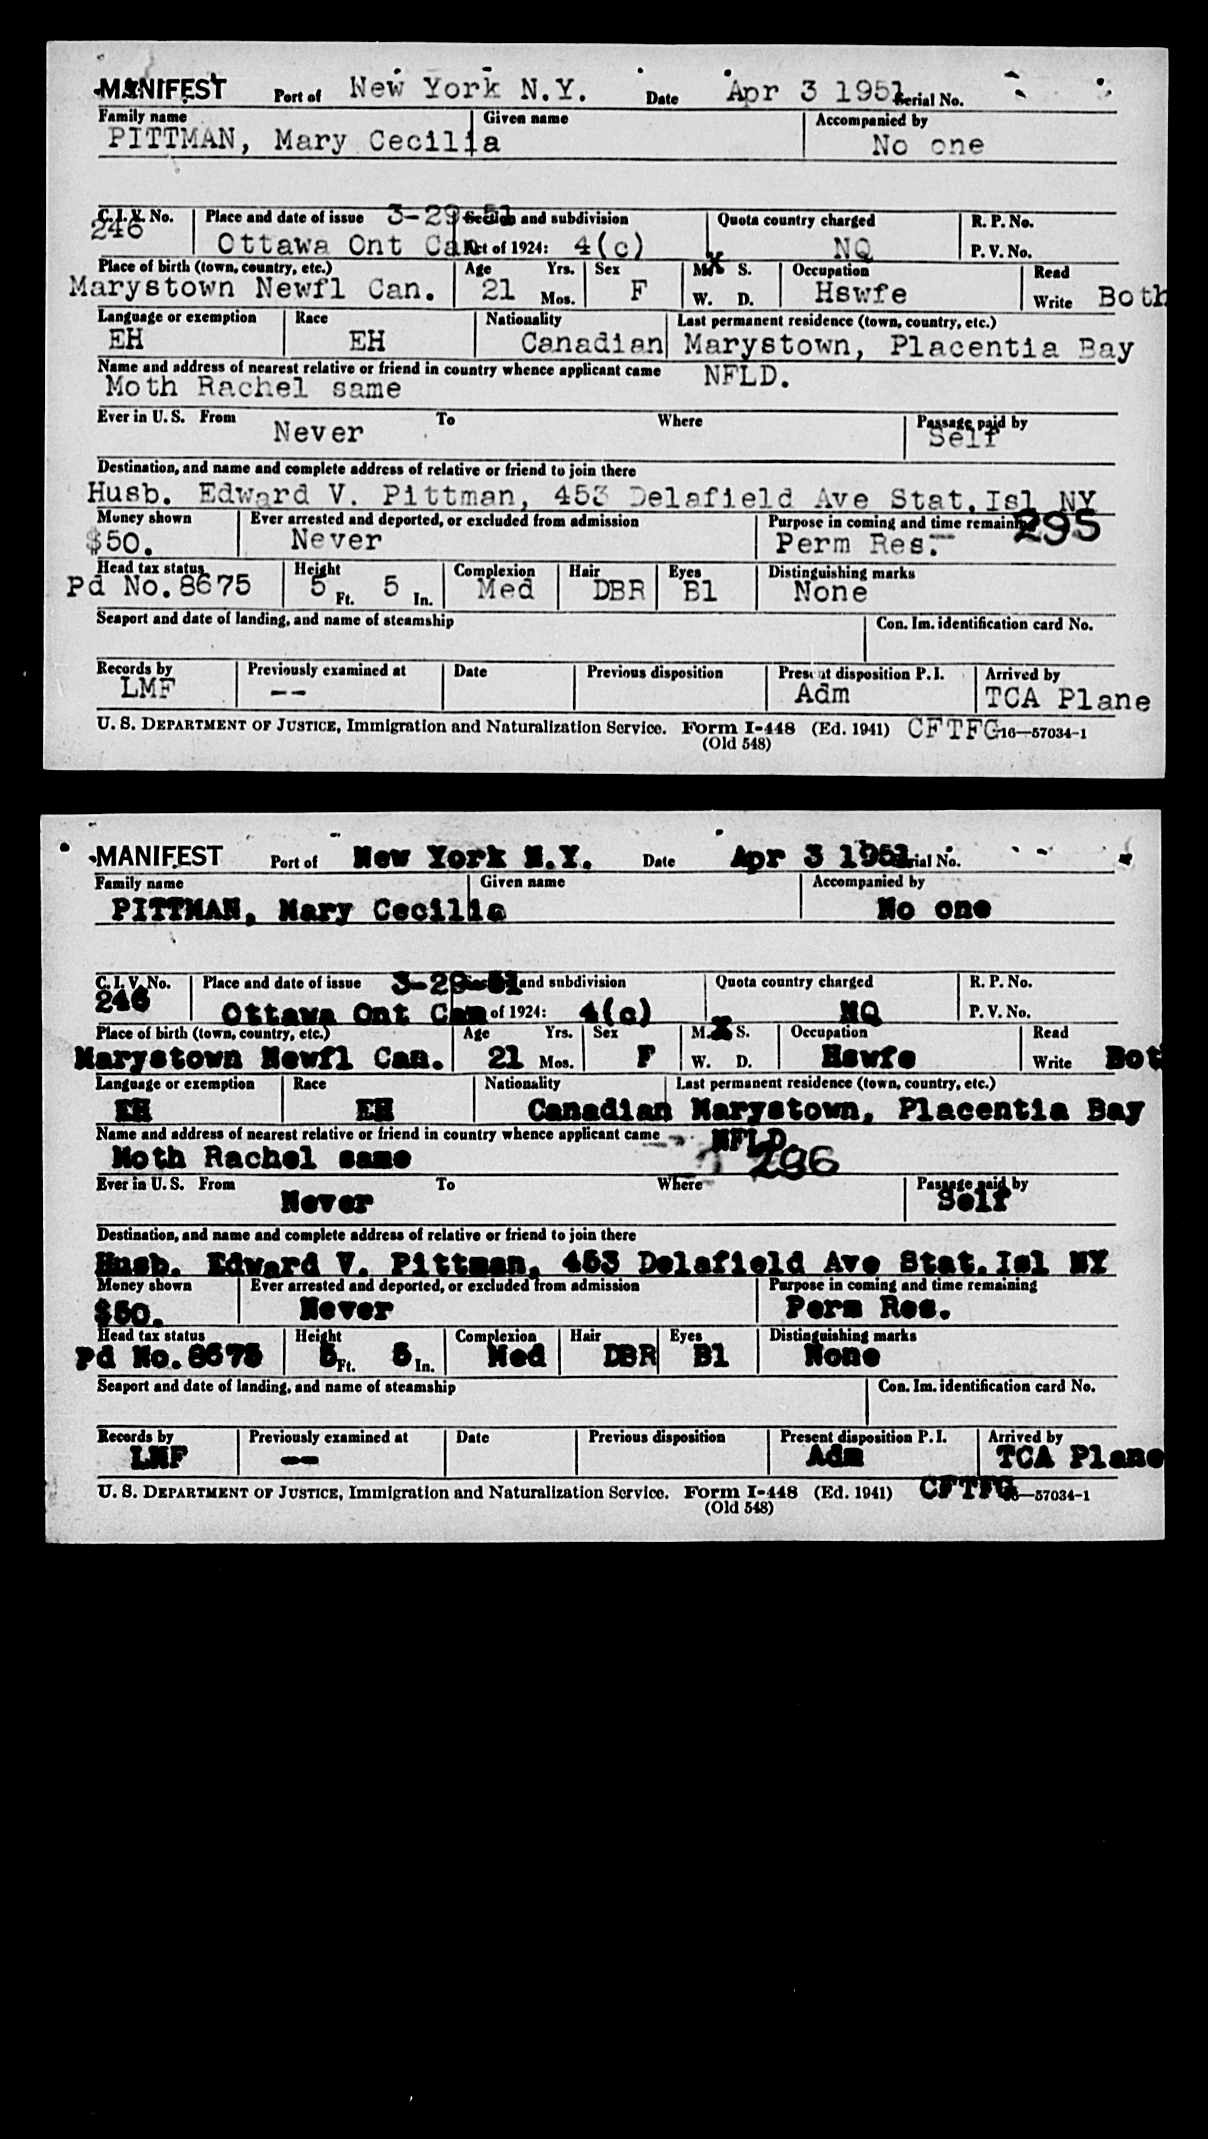 MANIFEST Port of New York N.Y. Date Apr 3 1951 Serial No.
Family name Given name Accompanied by
PITTMAN, Mary Cecilia No one
C.I.V. No. Place and date of issue 3-29-51 Section and subdivision Quota country charged R. P. No.
246 Ottawa Ont Can Act of 1924: 4(c) NQ P. V. No.
Place of birth (town, country, etc.) Age Yrs. Sex M. X S. Occupation Read
Marystown Newfl Can. 21 Mos. F W. D. Hswfe Write Both
Language or exemption Race Nationality Last permanent residence (town, country, etc.)
EH EH Canadian Marystown, Placentia Bay
Name and address of nearest relative or friend in country whence applicant came NFLD.
Moth Rachel same
Ever in U. S. From To Where Passage paid by
Never Self
Destination, and name and complete address of relative or friend to join there
Husb. Edward V. Pittman, 453 Delafield Ave Stat.Isl NY
Money shown Ever arrested and deported, or excluded from admission Purpose in coming and time remaining 295
$50. Never Perm Res.
Head tax status Height Complexion Hair Eyes Distinguishing marks
Pd No.8675 5 Ft. 5 In. Med DBR Bl None
Seaport and date of landing, and name of steamship Con. Im. identification card No.
Records by Previously examined at Date Previous disposition Present disposition P. I. Arrived by
LMF -- Adm TCA Plane
U. S. DEPARTMENT OF JUSTICE, Immigration and Naturalization Service. Form I-448 (Ed. 1941) CFTFG 16—57034-1
(Old 548)
MANIFEST Port of New York N.Y. Date Apr 3 1951 Serial No.
Family name Given name Accompanied by
PITTMAN, Mary Cecilia No one
C. I. V. No. Place and date of issue 3-29-51 and subdivision Quota country charged R. P. No.
246 Ottawa Ont Can of 1924: 4(c) NQ P. V. No.
Place of birth (town, country, etc.) Age Yrs. Sex M. X S. Occupation Read
Marystown Newfl Can. 21 Mos. F W. D. Hswfe Write Bot
Language or exemption Race Nationality Last permanent residence (town, country, etc.)
EH EH Canadian Marystown, Placentia Bay
Name and address of nearest relative or friend in country whence applicant came NFLD.
Moth Rachel same 296
Ever in U. S. From To Where Passage paid by
Never Self
Destination, and name and complete address of relative or friend to join there
Husb. Edward V. Pittman, 453 Delafield Ave Stat.Isl NY
Money shown Ever arrested and deported, or excluded from admission Purpose in coming and time remaining
$50. Never Perm Res.
Head tax status Height Complexion Hair Eyes Distinguishing marks
Pd No.8675 5 Ft. 5 In. Med DBR Bl None
Seaport and date of landing, and name of steamship Con. Im. identification card No.
Records by Previously examined at Date Previous disposition Present disposition P. I. Arrived by
LMF -- Adm TCA Plane
U. S. DEPARTMENT OF JUSTICE, Immigration and Naturalization Service. Form I-448 (Ed. 1941) CFTFG 16—57034-1
(Old 548)